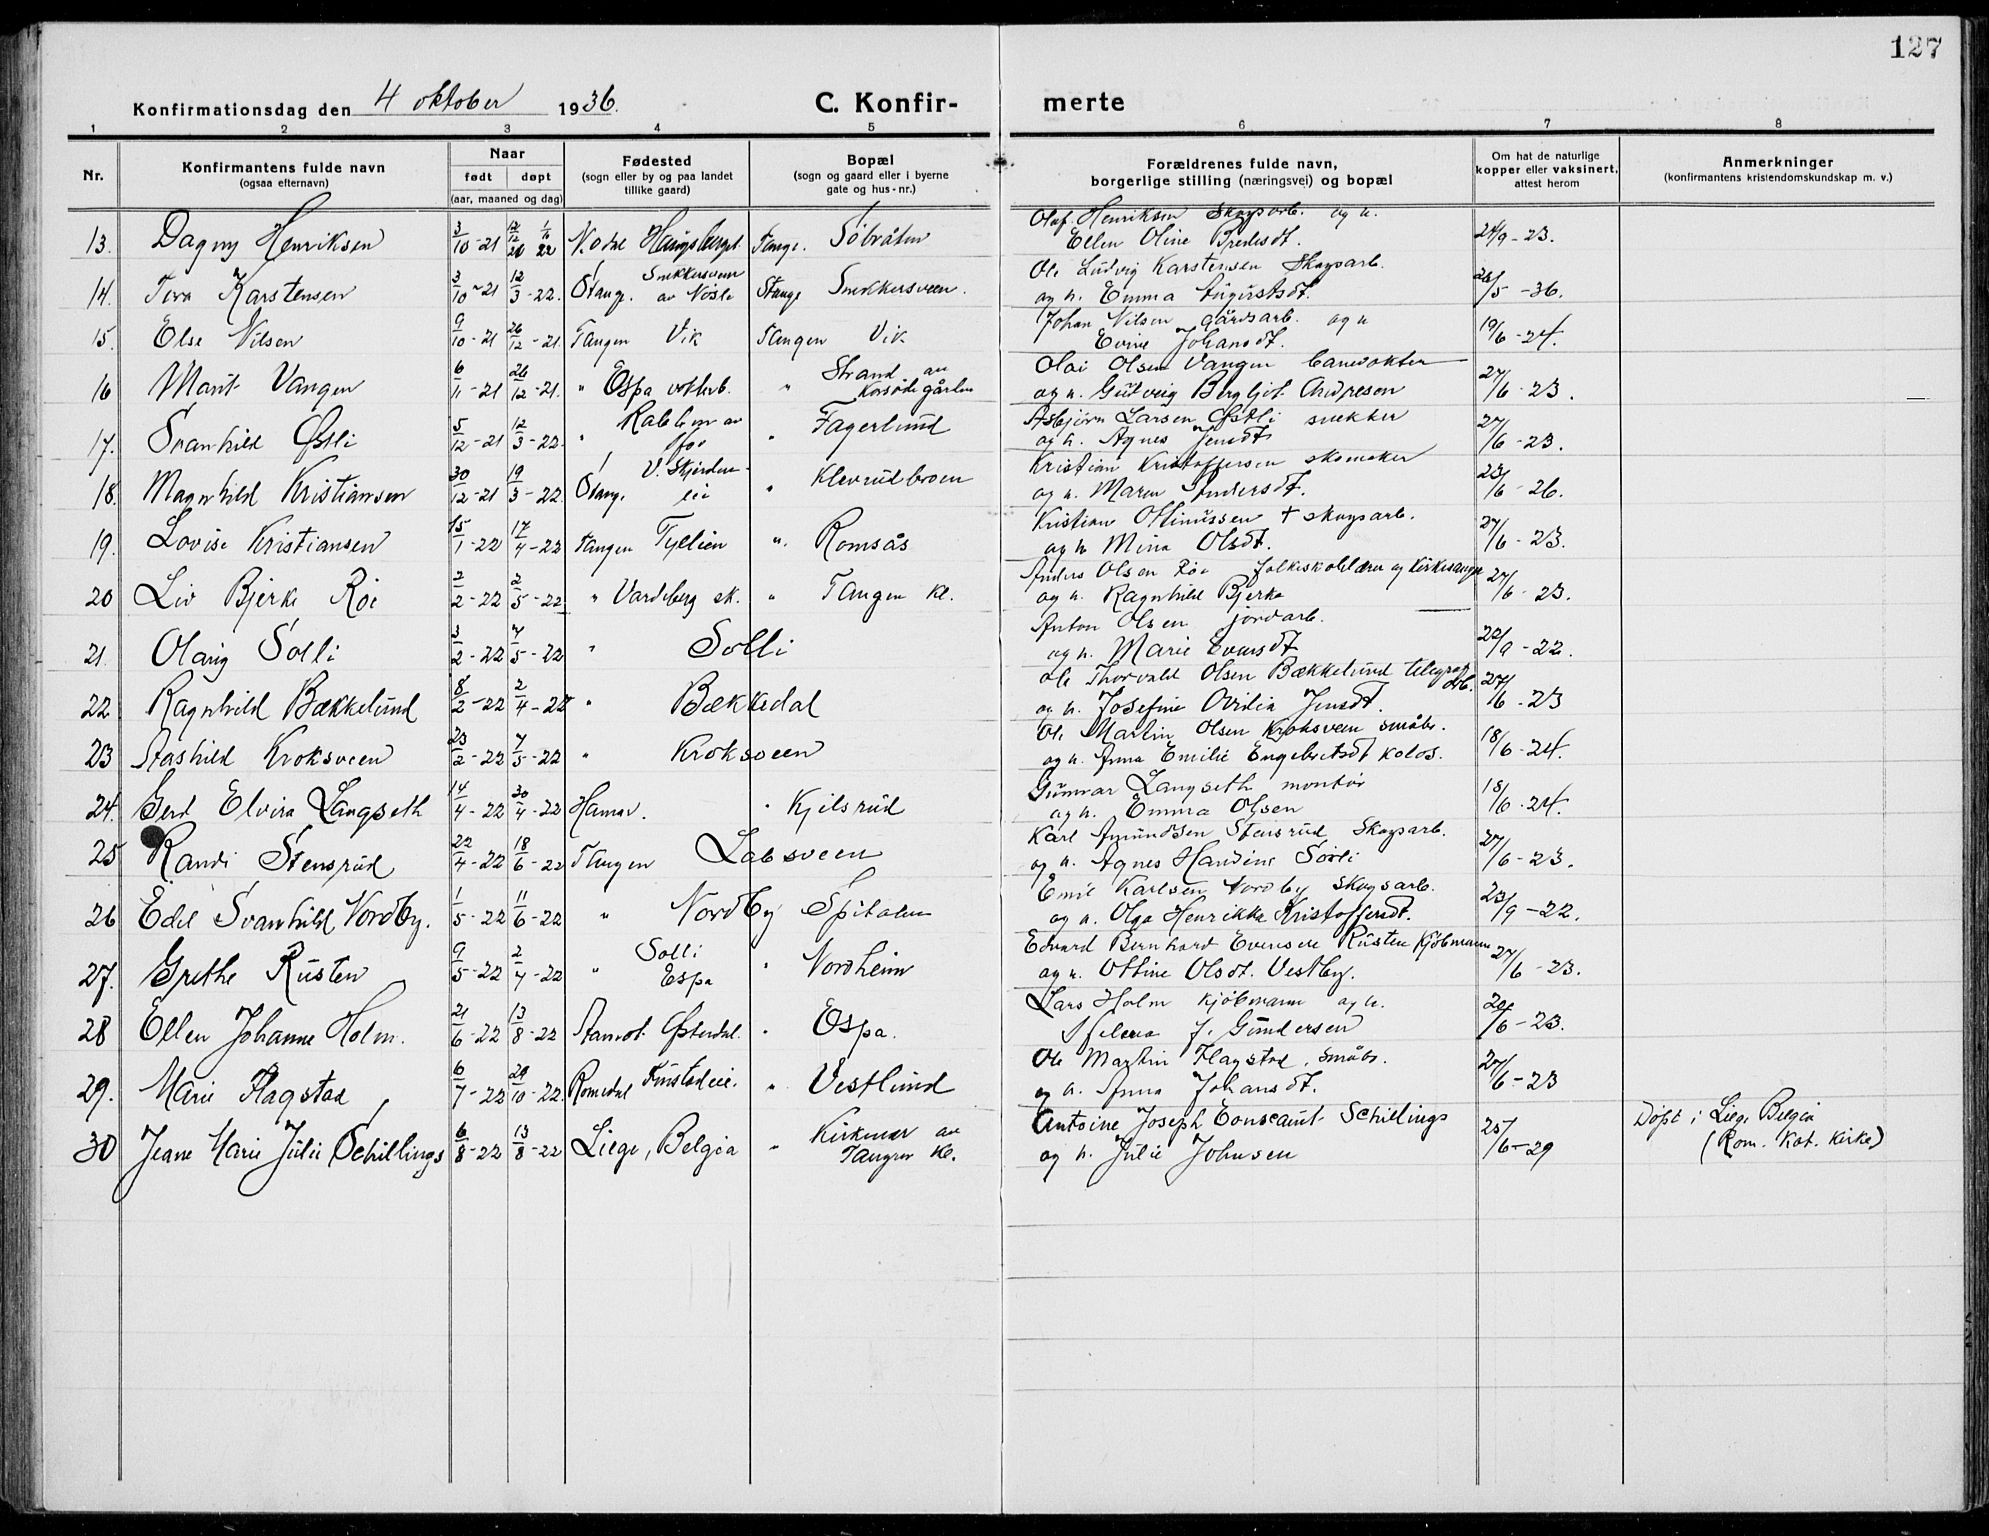 127
Konfirmationsdag den 4 oktober 1936.
C. Konfir-
merte
1 2 3 4 5 6 7 8
Nr.
Konfirmantens fulde navn
(ogsaa efternavn)
Naar
født døpt
(aar, maaned og dag)
Fødested
(sogn eller by og paa landet
tillike gaard)
Bopæl
(sogn og gaard eller i byerne
gate og hus-nr.)
Forældrenes fulde navn,
borgerlige stilling (næringsvei) og bopæl
Om hat de naturlige
kopper eller vaksinert,
attest herom
Anmerkninger
(konfirmantens kristendomskundskap m. v.)
Olaf Henriksen Skogsarb. og h.
13. Dagny Henriksen 3/10-21 Stange. Ellen Oline 24/9-23.
Ole Ludvig Karstensen Skogsarb.
14. Tora Karstensen 3/10-21 12/3-22. Stange. Snekkersveen Stange Snekkersveen. og h. Emma Augustsdt. 26/5-36.
Johan Nilsen gårdsarb. og h
15. Else Nilsen 9/10-21 26/12-21. Tangen Vik Tangen Vik Evine Johansdt. 19/6-24.
Olai Olsen Vangen banevokter
16 Marit Vangen 6/11-21 26/12-21. " Espa vokterb. " Strand av og h. Gudveig Bergljot Andresen 27/6-23.
Asbjørn Larsen Østli snekker
17. Svanhild Østli 5/12-21 12/3-22. " " Fagerlund og h. Agnes Jensdt 27/6-23.
Kristian Kristoffersen skomaker
18. Magnhild Kristiansen 30/12-21 19/3-22. Stange. " Klevrudbroen og h. Maren Andersdt. 23/6-26.
Kristian Ottinussen + skogsarb.
19. Lovise Kristiansen 15/1-22 17/4-22 Tangen Tyllien " Romsås og h Mina Olsdt. 27/6-23.
Anders Olsen Röe folkeskolelærer og kirkesanger
20 Liv Bjerke Röe 2/2-22 2/5-22 " Vardeberg sk. " Tangen kl. og h. Ragnhild Bjerke 27/6-23.
Anton Olsen jordarb.
21. Olaug Solli 3/2-22 7/5-22 " Solli og h. Marie Evensdt 22/9-22.
Ole Thorvald Olsen Bækkelund telegrafarb.
22 Ragnhild Bækkelund 8/2-22 2/4-22 " Bækkedal og h. Josefine Ovidia Jensdt. 27/6-23
Ole Martin Olsen Kroksveen småbr.
23 Aashild Kroksveen 23/2-22 7/5-22 " Kroksveen og h. Anna Emilie Engebretsdt kolos. 18/6-24.
Gunnar Langseth montör
24. Gerd Elvira Langseth 14/4-22 30/4-22 Hamar. " Kjilsrud og h. Emma Olsen 18/6-24.
Karl Amundsen Stensrud Skogsarb.
25 Randi Stensrud 22/4-22 18/6-22 Tangen Labsveen og h. Agnes Handine Sörli 27/6-23.
Emil Karlsen Nordby skogsarb.
26 Edel Svanhild Nordby. 1/5-22 11/6-22 " Nordby Spitalen og h. Olga Henrikke Kristoffersdt. 23/9-22.
Edvard Bernhard Evensen Rusten Kjöbmann
27. Grethe Rusten 9/5-22 2/7-22 " Solli Espa " Nordheim og h. Ottine Olsdt. Vestby. 27/6-23.
Lars Holm kjöbmann og h.
28 Ellen Johanne Holm. 21/6-22 13/8-22 Aamot Østerdal. " Espa. f. Gundersen 20/6-23.
Ole Martin Flagstad, småbr.
29. Marie Flagstad 6/7-22 29/10-22. Romedal Finstadeie. " Vestlund og h. Anna Johansdt. 27/6-23
Antoine Joseph Schillings
30 Jeane Marie Julie Schillings 6/8-22 13/8-22 Liege, Belgia " Kirkenær av Tangen kl. og h. Julie Johnsen 25/6-29
Döpt i Liege Belgia
(Rom. Kat. Kirke)